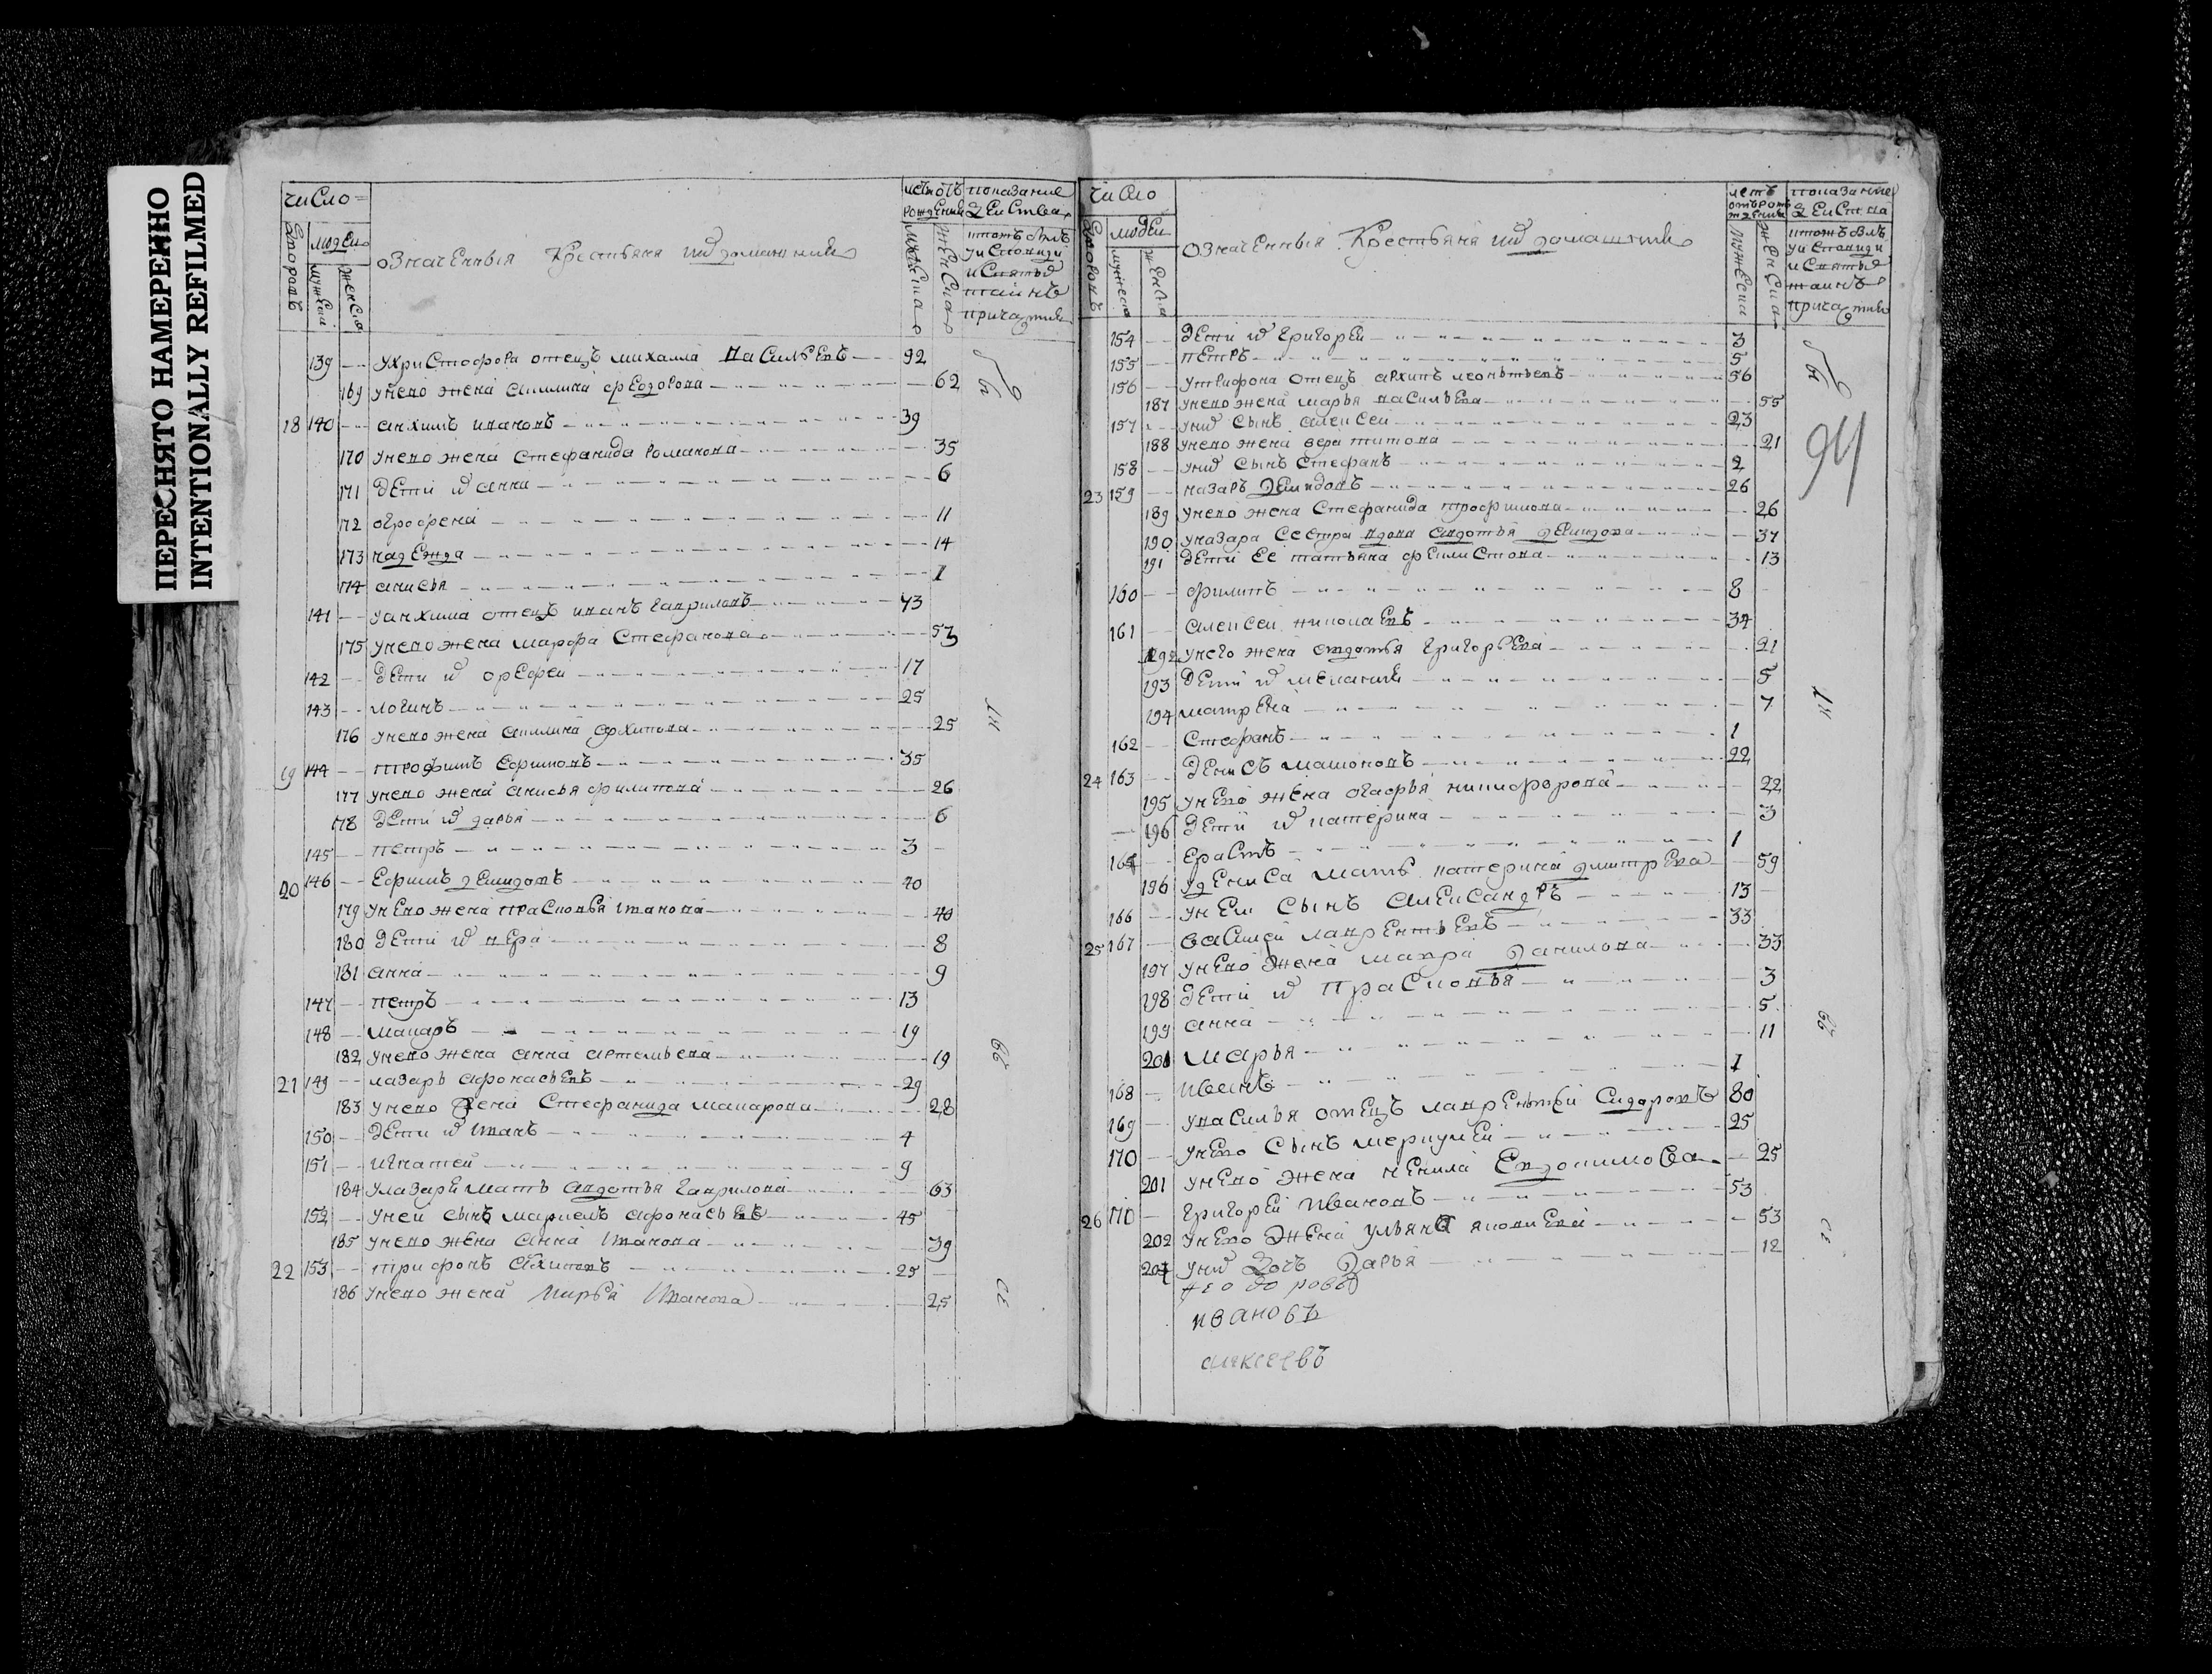 ПЕРЕСНЯТО НАМЕРЕННО
INTENTIONALLY REFILMED
число
людей
означенныя Крестьяня и их домашники
показание
139 у христофора отецъ михаила василевъ 92
169 у нево жена акилина феодорова 62
18 140 анхимъ ивановъ 39
170 у нево жена стефанида романова 35
171 дети их анна 6
172 огрофена 11
173 надежда 14
174 анисья 1
141 у анхима отецъ иванъ гавриловъ 73
175 у нево жена марфа стефанова 57
142 дети их орефей 17
143 логинъ 25
176 у нево жена акилина архипова 25
19 144 трофимъ ефимовъ 35
177 у нево жена анисья филипова 26
178 дети их дарья 6
145 петръ 3
20 146 ефимъ демидовъ 40
179 у нево жена прасковья иванова 40
180 дети их вера 8
181 анна 9
147 петръ 13
148 макаръ 19
182 у нево жена анна артемьева 19
21 149 лазарь афонасьевъ 29
183 у нево жена стефанида макарова 28
150 дети их иванъ 4
151 игнатей 9
184 у лазаре мать авдотья гаврилова 63
152 у ней сынъ маркелъ афонасьевъ 45
185 у нево жена анна иванова 39
22 153 трифонъ архиповъ 25
186 у нево жена марья иванова 25
число
людей
означенныя Крестьяня и их домашники
показание
94
154 дети их григорей 3
155 петръ 5
156 у трифона отецъ архипъ леонтьевъ 56
187 у нево жена марья васильева 55
157 у них сынъ алексей 23
188 у нево жена вера титова 21
158 у них сынъ стефанъ 2
23 159 назаръ демидовъ 26
189 у нево жена стефанида трофимова 26
190 у назара сестра вдова авдотья демидова 37
191 дети ее татьяна филистова 13
160 филипъ 8
161 алексей николаевъ 34
192 у него жена евдотья григорьева 21
193 дети их меланья 5
194 матрена 7
162 стефанъ 1
24 163 денисъ 22
195 у нево жена огафья никифорова 22
196 дети их катерина 3
164 ерастъ 1
196 у дениса мать катерина дмитрева 59
166 у неи сынъ александръ 13
25 167 василей лаврентьевъ 33
197 у нево жена мавра данилова 33
198 дети их прасковья 3
199 анна 5
201 марья 11
168 1
169 у василья отецъ лаврентей сидоровъ 80
170 у нево сынъ меркулей 25
201 у нево жена ненила евдокимова 25
26 170 григорей ивановъ 53
202 у нево жена ульяна яковлева 53
204 у них дочь дарья 12
ивановъ
алексеевъ